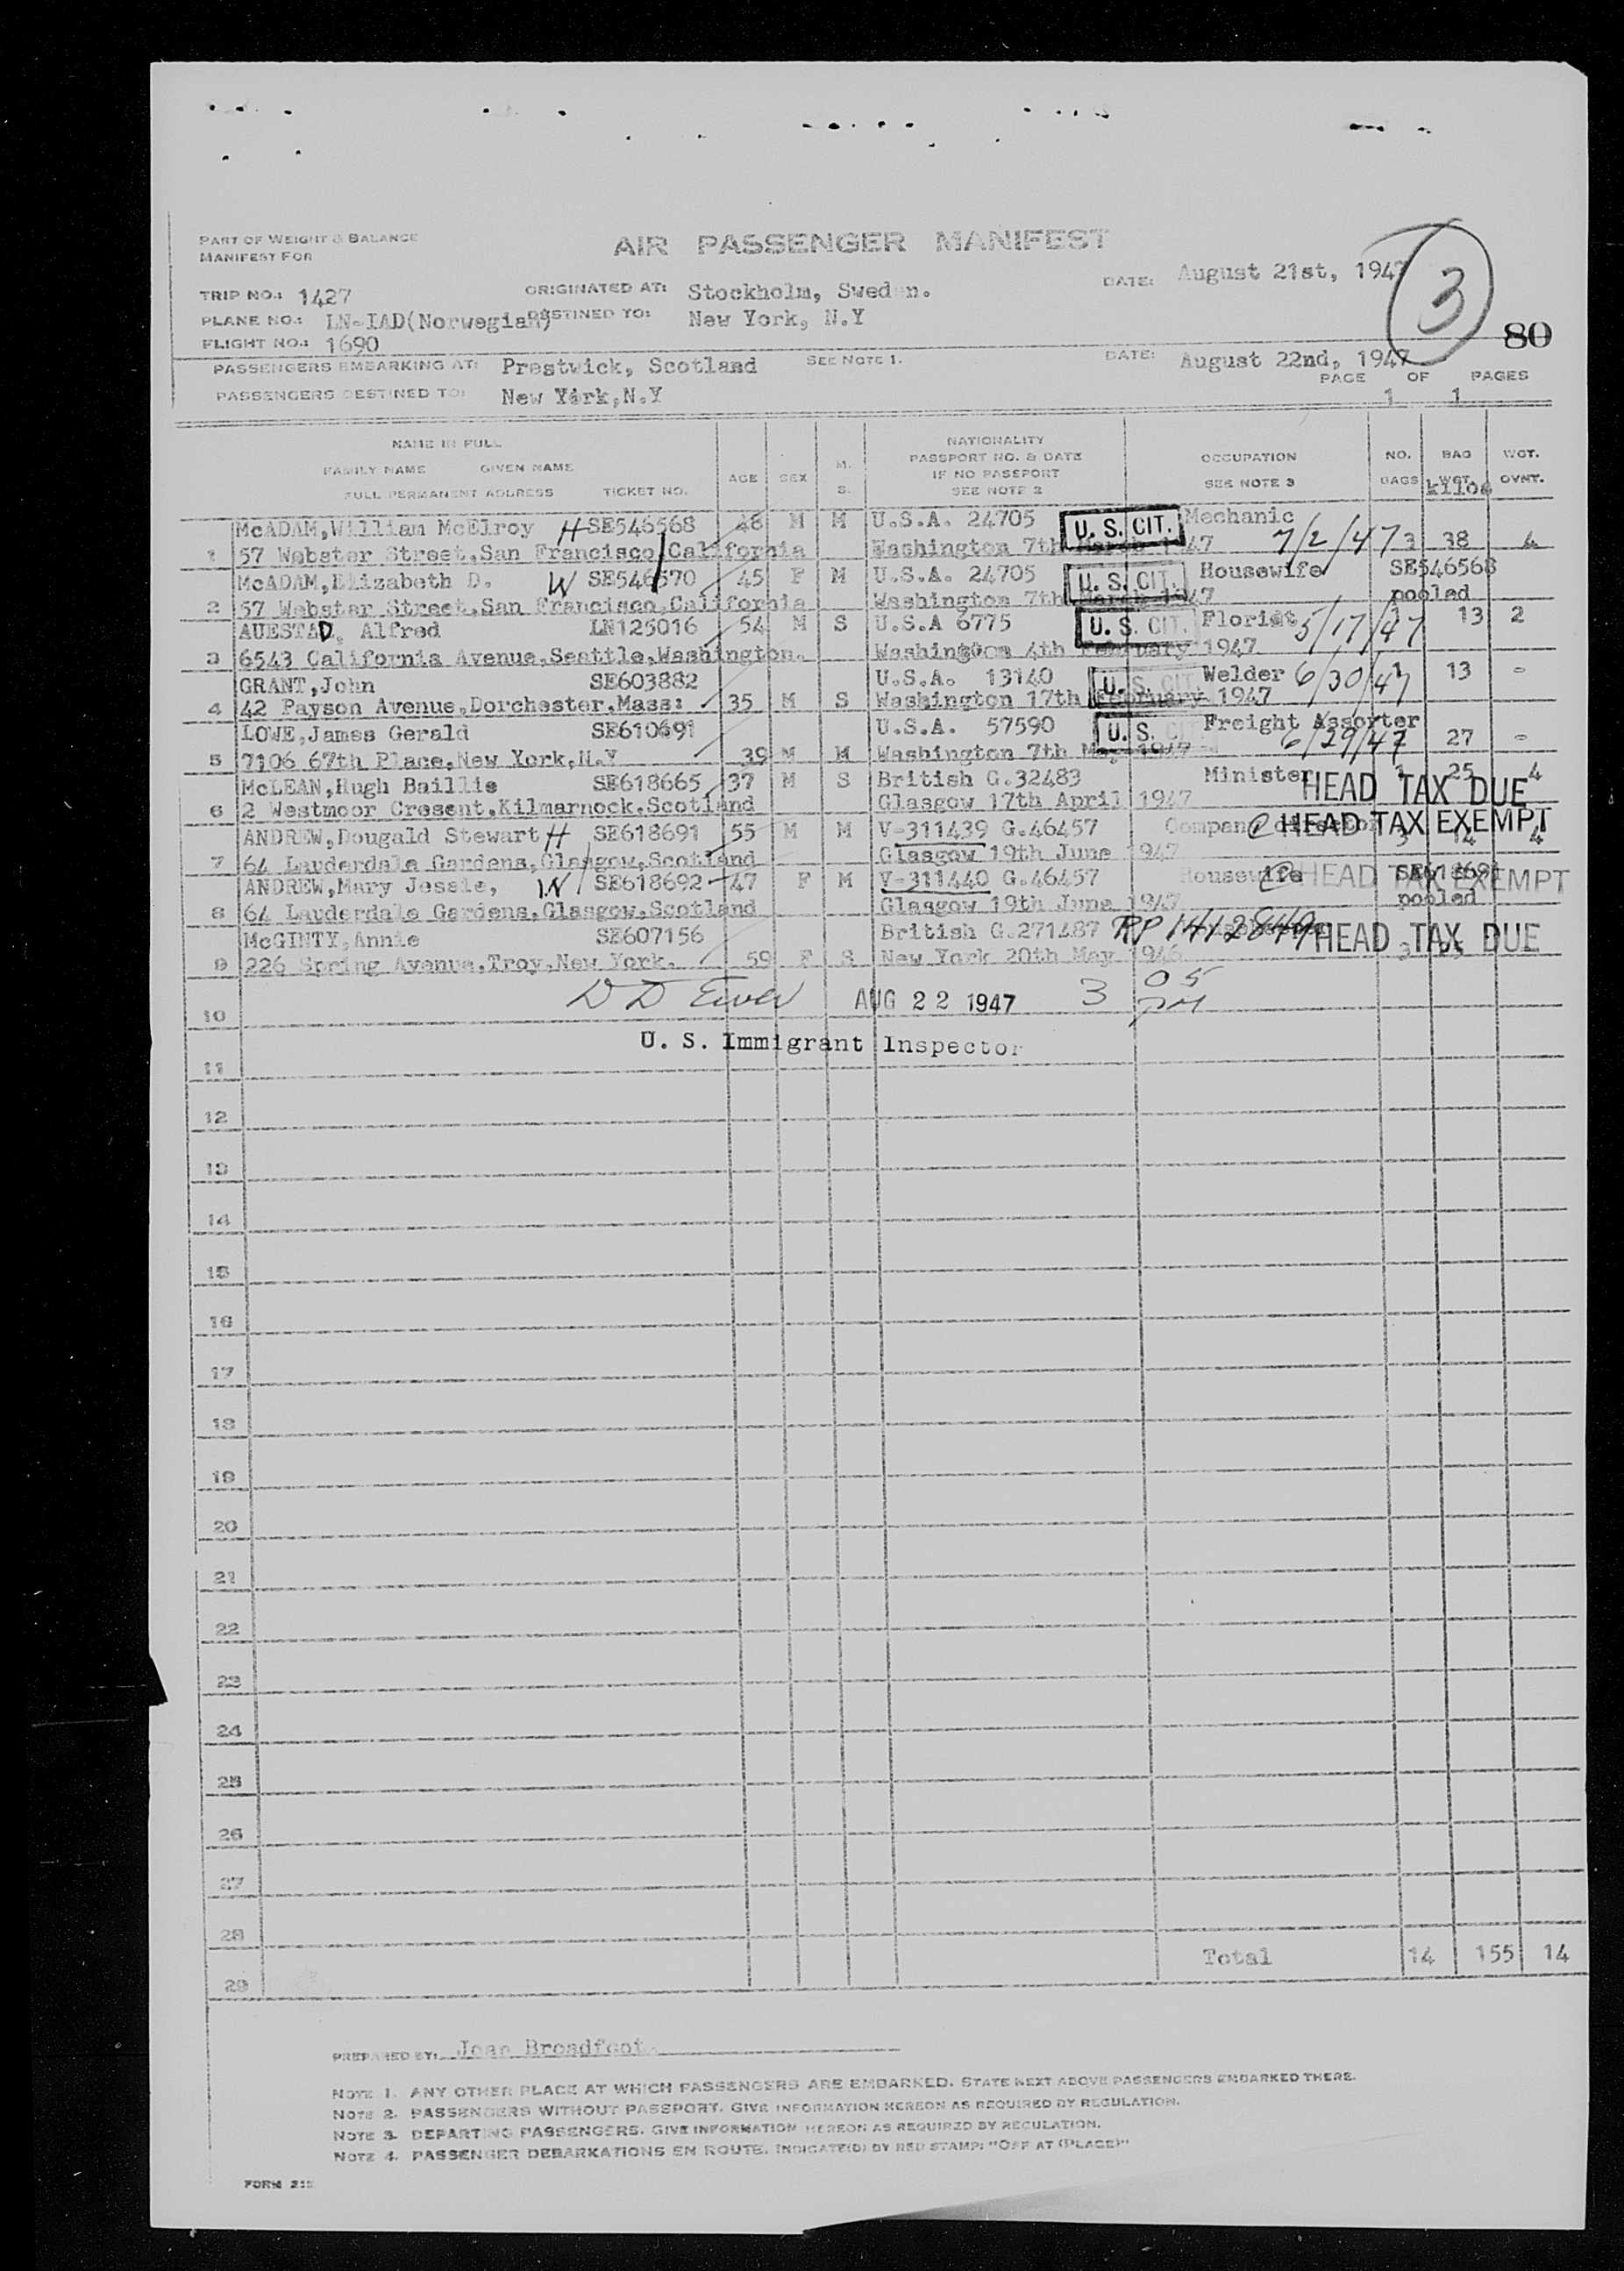 PART OF WEIGHT & BALANCE
MANIFEST FOR
AIR PASSENGER MANIFEST
TRIP NO.: 1427 ORIGINATED AT: Stockholm, Sweden. DATE: August 21st, 1947
3
PLANE NO.: LN-IAD(Norwegian) DESTINED TO: New York, N.Y
FLIGHT NO.: 1690
80
PASSENGERS EMBARKING AT: Prestwick, Scotland SEE NOTE 1. DATE: August 22nd, 1947
PASSENGERS DESTINED TO: New York,N.Y PAGE 1 OF 1 PAGES
NAME IN FULL
FAMILY NAME GIVEN NAME
FULL PERMANENT ADDRESS TICKET NO. AGE SEX M. S. NATIONALITY PASSPORT NO. & DATE IF NO PASSPORT SEE NOTE 2 OCCUPATION SEE NOTE 3 NO. BAGS BAG WGT. kilos WGT. OVNT.
McADAM,William McElroy H SE546568 48 M M U.S.A. 24705 U. S. CIT. Mechanic
1 57 Webster Street,San Francisco,California Washington 7th March 1947 7/2/47 3 38 4
McADAM,Elizabeth D. W SE546570 45 F M U.S.A. 24705 U. S. CIT. Housewife SE546568
2 57 Webster Street,San Francisco,California Washington 7th March 1947 pooled
AUESTAD, Alfred LN125016 54 M S U.S.A 6775 U. S. CIT. Florist 5/17/47 1 13 2
3 6543 California Avenue,Seattle,Washington. Washington 4th February 1947
GRANT,John SE603882 U.S.A. 13140 U. S. CIT. Welder 6/30/47 1 13 -
4 42 Payson Avenue,Dorchester,Mass: 35 M S Washington 17th February 1947
LOWE,James Gerald SE610691 U.S.A. 57590 U. S. CIT. Freight Assorter
5 7106 67th Place,New York,N.Y 39 M M Washington 7th May 1947 6/29/47 27 -
McLEAN,Hugh Baillie SE618665 37 M S British G.32483 Minister 1 25 4
6 2 Westmoor Cresent,Kilmarnock,Scotland Glasgow 17th April 1947 HEAD TAX DUE
ANDREW,Dougald Stewart H SE618691 55 M M V-311439 G.46457 Company HEAD TAX EXEMPT
7 64 Lauderdale Gardens,Glasgow,Scotland Glasgow 19th June 1947 3 14 4
ANDREW,Mary Jessie, W SE618692 47 F M V-311440 G.46457 Housewife HEAD TAX EXEMPT SE618691
8 64 Lauderdale Gardens,Glasgow,Scotland Glasgow 19th June 1947 pooled
McGINTY,Annie SE607156 British G.271487 RP 1412849 HEAD TAX DUE
9 226 Spring Avenue,Troy,New York. 59 F S New York 20th May 1946 3
10 AUG 22 1947 3 05 PM
U. S. Immigrant Inspector
11
12
13
14
15
16
17
18
19
20
21
22
23
24
25
26
27
28
Total 14 155 14
29
PREPARED BY: Joan Broadfoot
NOTE 1. ANY OTHER PLACE AT WHICH PASSENGERS ARE EMBARKED. STATE NEXT ABOVE PASSENGERS EMBARKED THERE.
NOTE 2. PASSENGERS WITHOUT PASSPORT. GIVE INFORMATION HEREON AS REQUIRED BY REGULATION.
NOTE 3. DEPARTING PASSENGERS. GIVE INFORMATION HEREON AS REQUIRED BY REGULATION.
NOTE 4. PASSENGER DEBARKATIONS EN ROUTE. INDICATE(D) BY RED STAMP: "OFF AT (PLACE)"
FORM